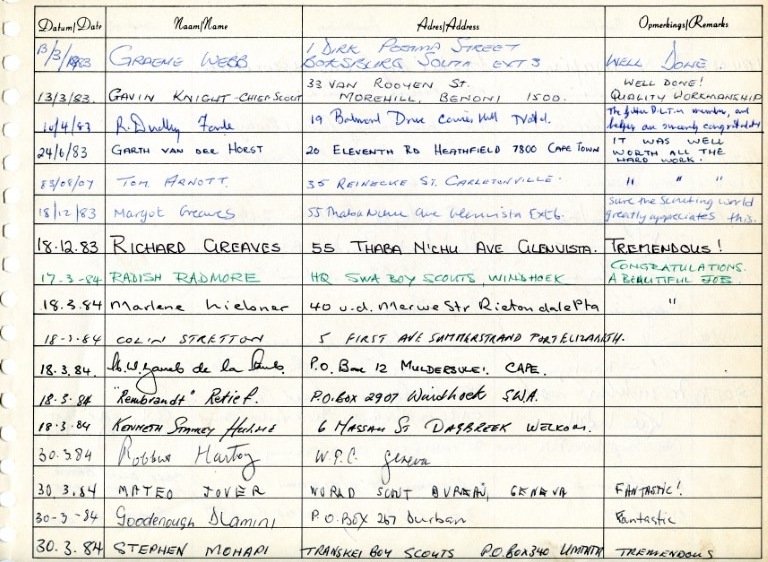 Datum/Date Naam/Name Adres/Address Opmerkings/Remarks
13/3/1983 GRAEME WEBB 1 DIRK POSTMA STREET
BOKSBURG SOUTH EXT 3 WELL DONE.
13/3/83. GAVIN KNIGHT - CHIEF SCOUT 33 VAN ROOYEN St.
MOREHILL, BENONI 1500. WELL DONE!
QUALITY WORKMANSHIP
10/4/83 R. Dudley 19 Balmoral Drive Cowies Hill
and
helpers are sincerely congratulated
24/6/83 GARTH VAN DER HORST 20 ELEVENTH RD HEATHFIELD 7800 CAPE TOWN IT WAS WELL
WORTH ALL THE
HARD WORK.
83/08/07 TOM ARNOTT. 35 REINECKE ST. CARLETONVILLE. " " "
18/12/83 Margot Greaves 55 Thaba Nchu Ave Glenvista Ext 6. Sure the Scouting world
greatly appreciates this.
18.12.83 RICHARD GREAVES 55 THABA N'CHU AVE GLENVISTA. TREMENDOUS!
17.3-84 RADISH RADMORE HQ SWA BOY SCOUTS, WINDHOEK CONGRATULATIONS.
A BEAUTIFUL JOB
18.3.84 Marlene Liebner 40 v.d. Merwe Str Rietondale Pta "
18-3-84 COLIN STRETTON 5 FIRST AVE SUMMERSTRAND PORT ELIZABETH.
18.3.84. de la P.O. Box 12 MULDERSVLEI. CAPE.
18-3-84 "Rembrandt" Retief. P.O. BOX 2907 Windhoek SWA.
18-3-84 KENNETH STANLEY HULME 6 MASSAM ST DAGBREEK WELKOM.
30.3.84 Hartog Geneva
30.3.84 MATEO JOVER WORLD SCOUT BUREAU, GENEVA FANTASTIC!
30-3-84 Goodenough Dlamini P.O. BOX 267 Durban Fantastic
30.3.84 STEPHEN MOHAPI TRANSKEI BOY SCOUTS P.O. BOX 340 UMTATA TREMENDOUS